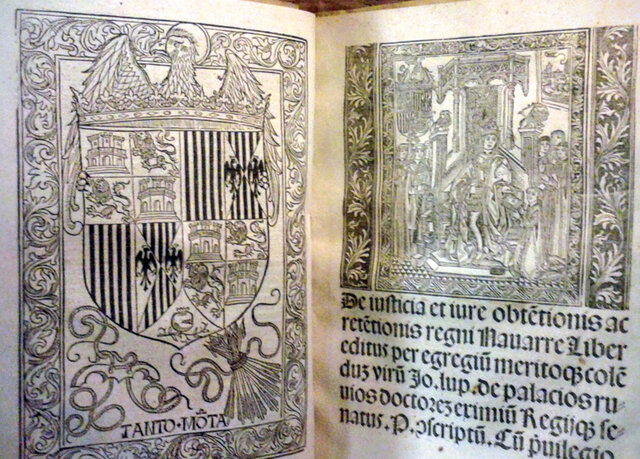 TANTO·MŌTA
De iusticia et iure obtētionis ac
retētionis regni Nauarre Liber
editus per egregiū meritoqꝫ colē
duꝫ virū Jo. lup. de palacios ru
uios doctoreꝫ eximiū Regijqꝫ se
natus. P. ↄscriptū. Cū p̄uilegio